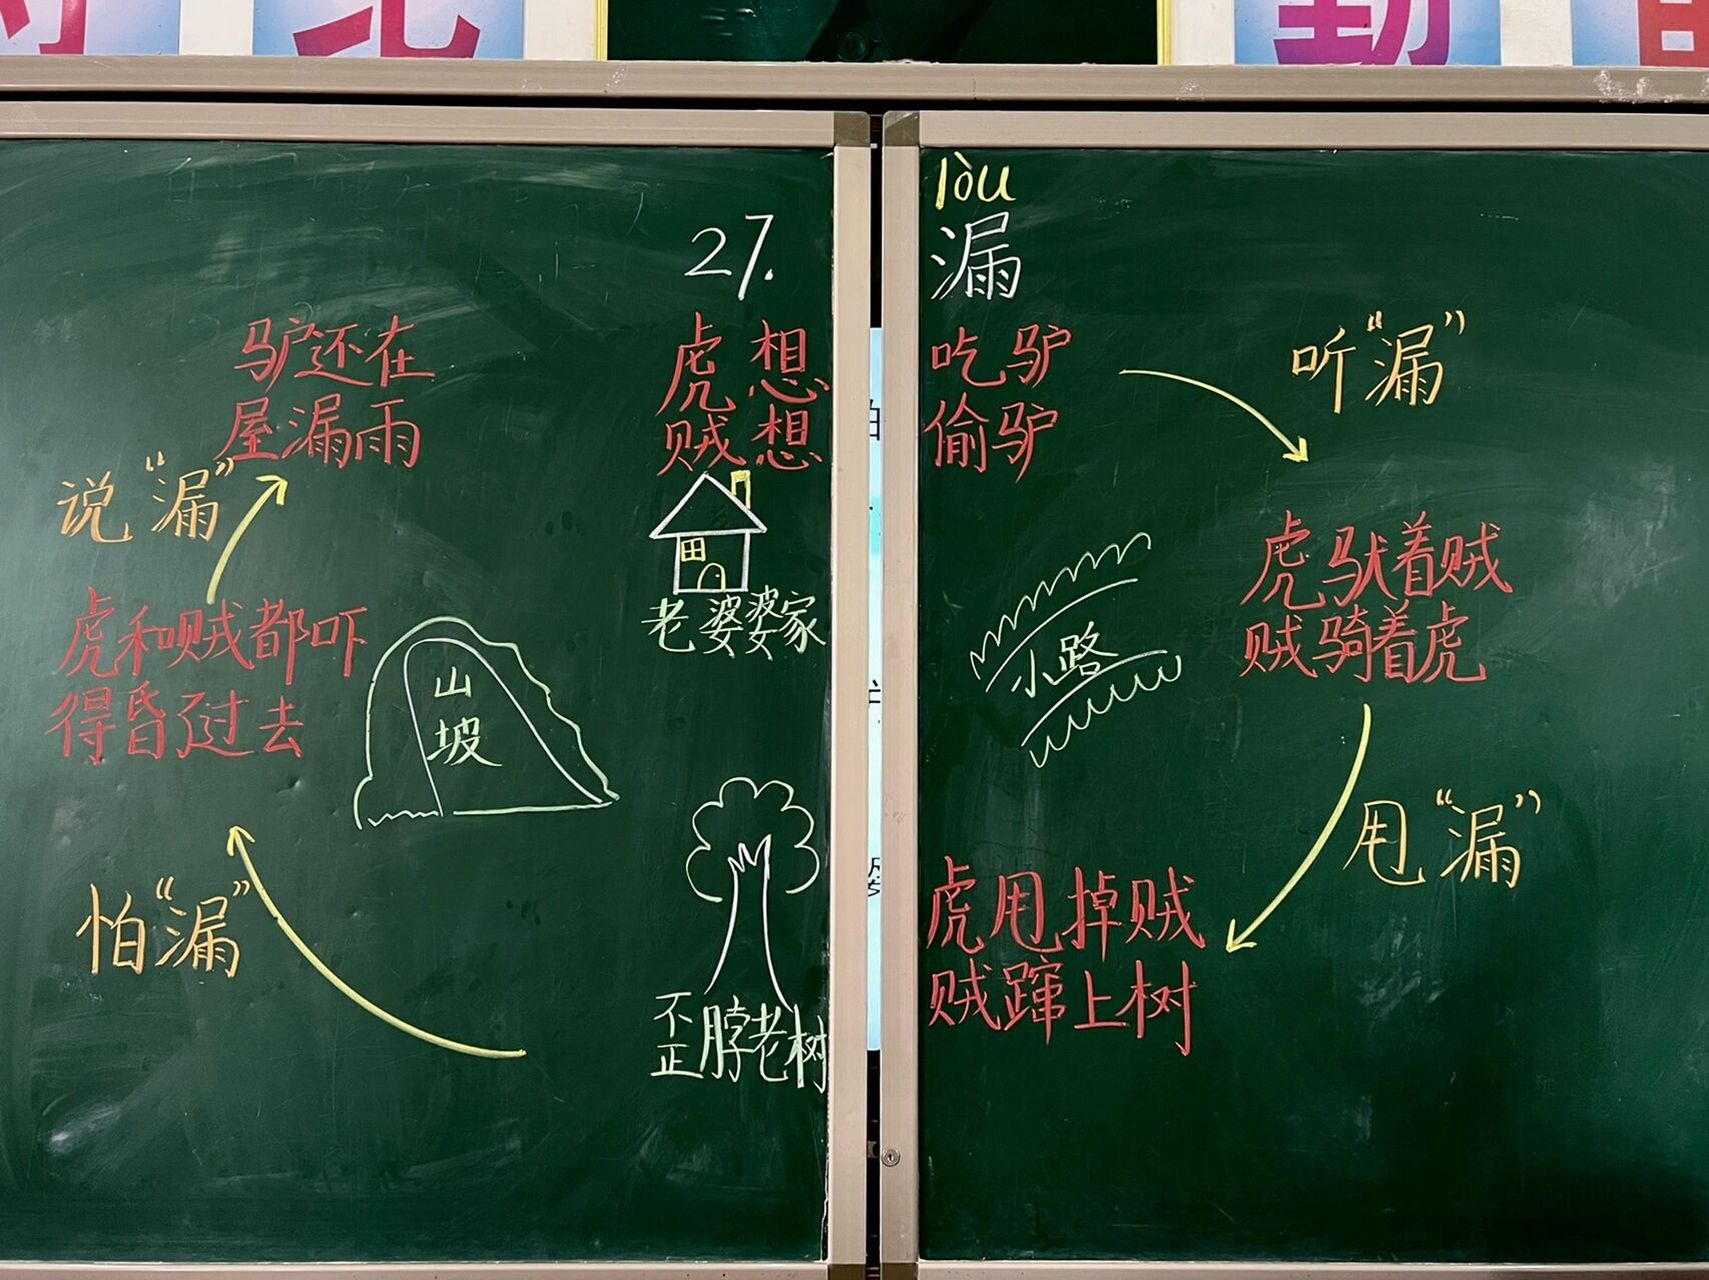 lòu
27. 漏
虎想吃驴
贼想偷驴
听“漏”
虎驮着贼
贼骑着虎
甩“漏”
虎甩掉贼
贼蹿上树
怕“漏”
虎和贼都吓
得昏了过去
说“漏”
驴还在
屋漏雨
老婆婆家
小路
山
坡
歪脖老树